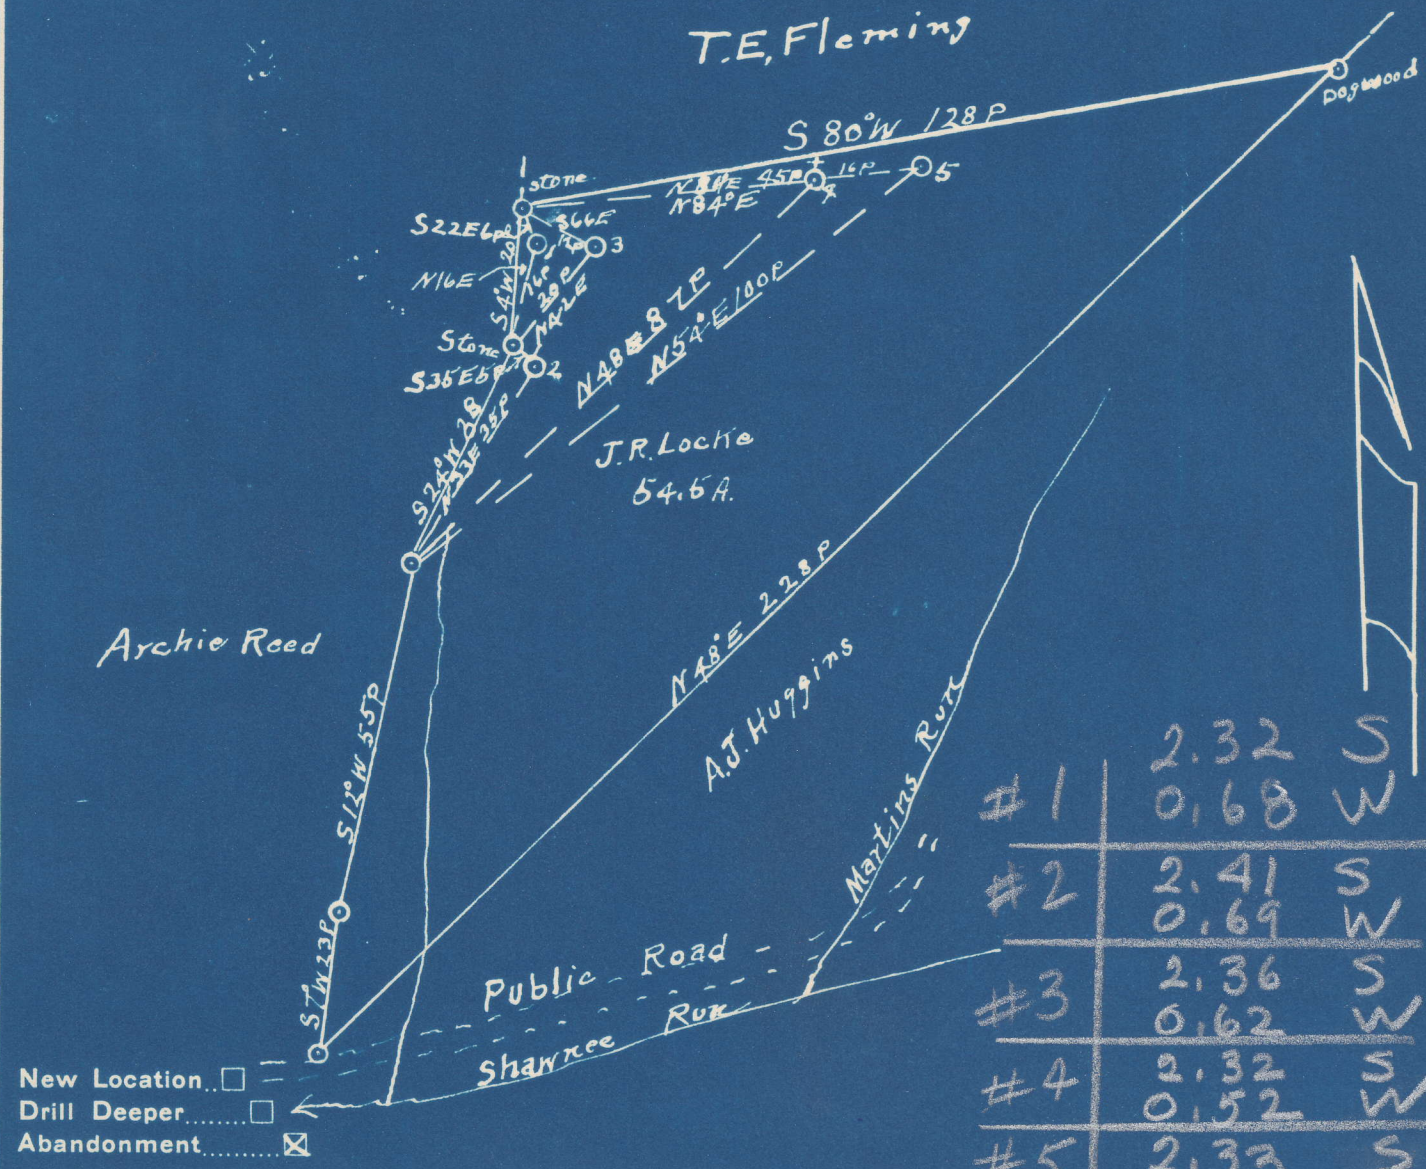 T.E. Fleming
Dogwood
S 80°W 128P
stone
N84°E 45P
16P
N84°E
4
5
S22E6P
S66E
12P
1
3
N16E
16P
S4°W 20
39P
N42E
Stone
S35E5P
2
N48E 87P
N54°E100P
S24°W 28
N33E 35P
J.R. Locke
54.5A.
Archie Reed
N48°E 228P
S12°W 55P
A.J. Huggins
Martins Run
S7°W 23P
Public Road
Shawnee Run
New Location..
Drill Deeper.......
Abandonment..........
#1 2.32 S
0.68 W
#2 2.41 S
0.69 W
#3 2.36 S
0.62 W
#4 2.32 S
0.52 W
#5 2.33 S